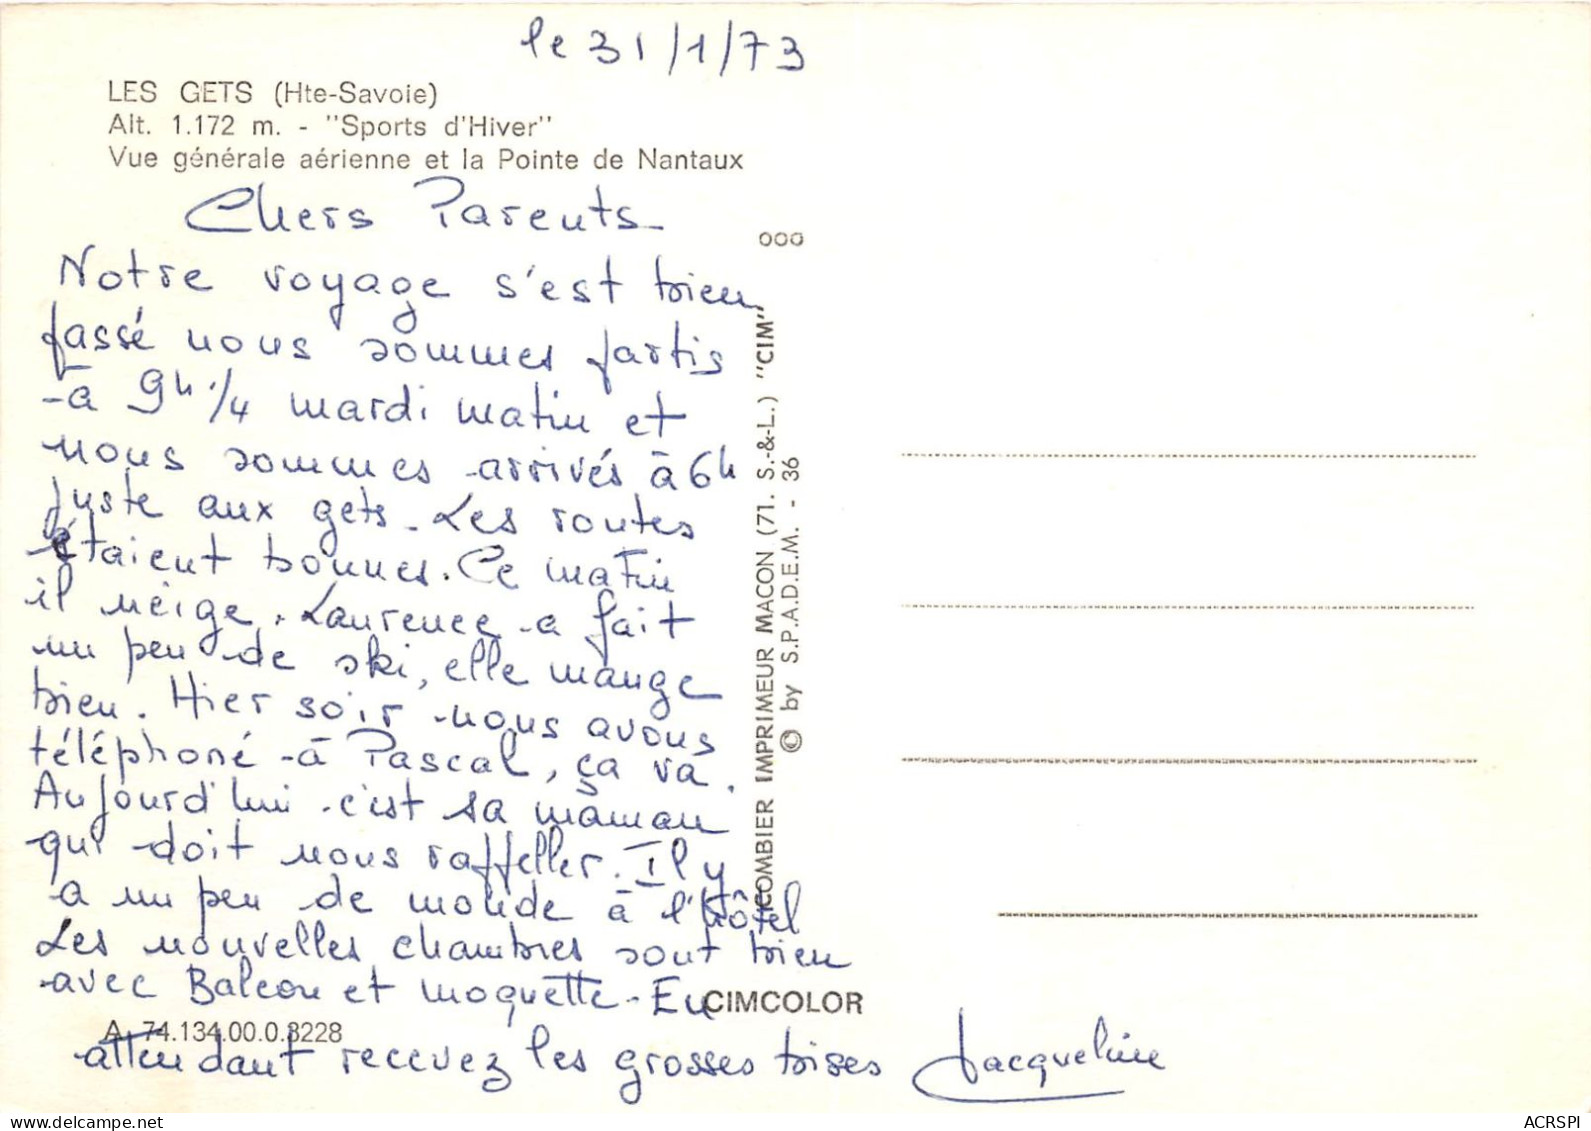 le 31/1/73
LES GETS (Hte-Savoie)
Alt. 1.172 m. - "Sports d'Hiver"
Vue générale aérienne et la Pointe de Nantaux
Chers Parents
Notre voyage s'est bien
passé nous sommes partis
à 9h 1/4 mardi matin et
nous sommes arrivés à 6h
juste aux gets. Les routes
étaient bonnes. Ce matin
il neige. Laurence a fait
un peu de ski, elle mange
bien. Hier soir nous avons
téléphoné à Pascal, ça va.
Aujourd'hui c'est sa maman
qui doit nous rappeller. Il y
a un peu de monde à l'hôtel
Les nouvelles chambres sont bien
avec Balcon et moquette. En
attendant recevez les grosses bises Jacqueline
ooo
COMBIER IMPRIMEUR MACON (71. S.-&-L.) "CIM"
© by S.P.A.D.E.M. - 36
CIMCOLOR
A. 74.134.00.0.3228
delcampe.net
ACRSPI